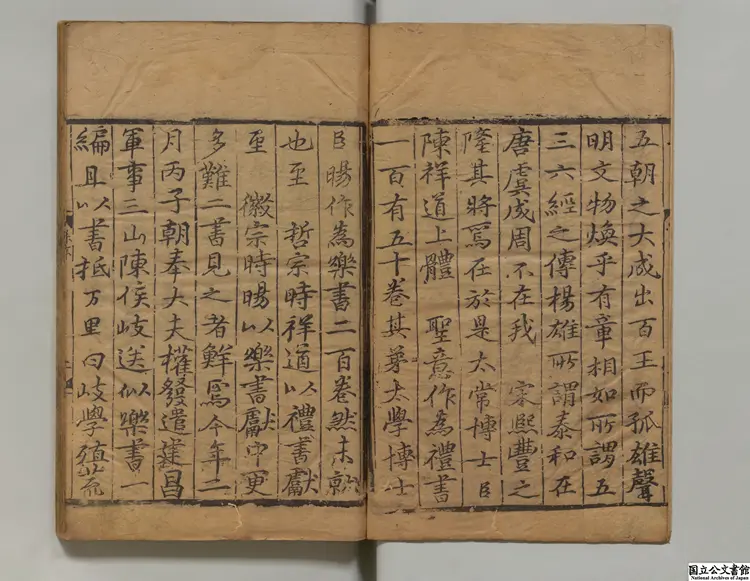 五朝之大成出百王而孤雄聲
明文物煥乎有章相如所謂五
三六經之傳楊雄所謂泰和在
唐虞成周不在我　宋熙豐之
隆其將焉在於是太常博士臣
陳祥道上體　聖意作為禮書
一百有五十卷其弟太學博士
臣暘作為樂書二百卷然未就
也至　哲宗時祥道以禮書獻
至　徽宗時暘以樂書獻中更
多難二書見之者鮮焉今年二
月丙子朝奉大夫權發遣建昌
軍事三山陳侯岐送似樂書一
編且以書抵万里曰岐學殖荒
国立公文書館
National Archives of Japan